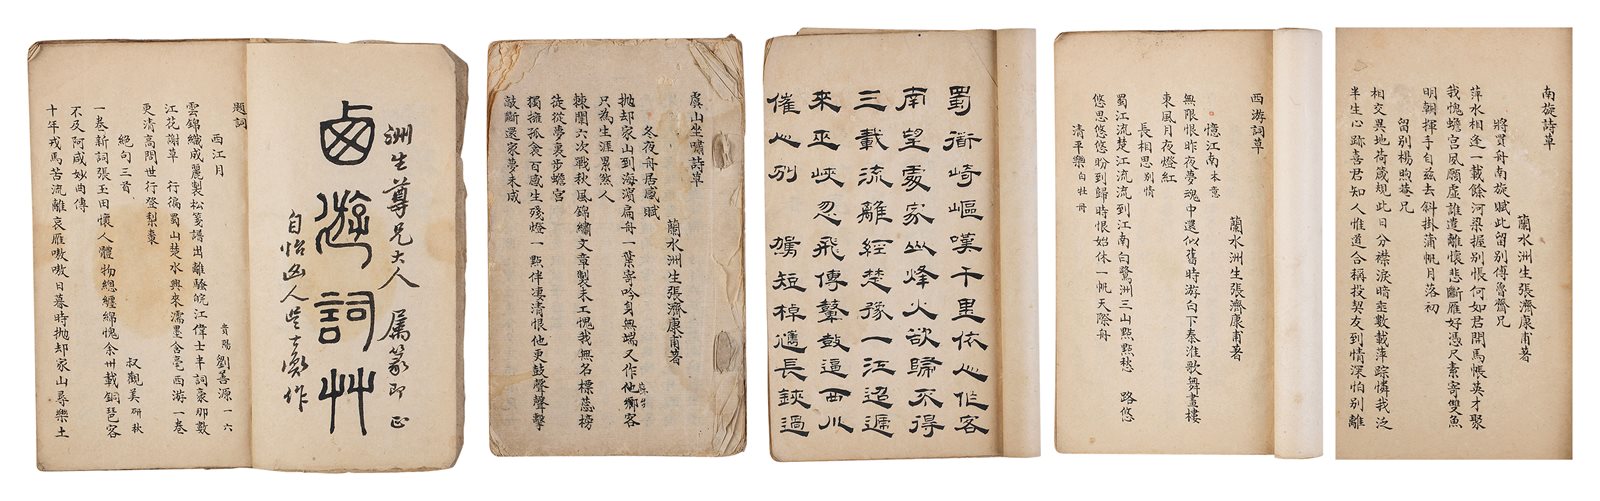 洲生尊兄大人 属篆即正
卤游詞艸
自怡山人
題詞
西江月
貴陽 劉善源 一六
雲錦織成麗製松箋譜出離騷皖江偉士半詞豪那數
江花謝草 行徧蜀山楚水興來濡墨含毫西游一卷
更清高問世行登梨棗
絕句三首
叔觀美研秋
一卷新詞張玉田懷人體物總纏綿愧余卅載銅琶客
不及阿咸妙曲傳
十年戎馬苦流離哀雁嗷嗷日暮時拋却家山尋樂土
虞山坐嘯詩草
蘭水洲生張濟康甫著
冬夜舟居感賦
拋却家山到海濱扁舟一葉寄吟身無端又作他鄉客
只為生涯累煞人
棘闈六次戰秋風錦繡文章製未工愧我無名標蕊榜
徒從夢裏步蟾宮
獨擁孤衾百感生殘燈一點伴凄清恨他更鼓聲聲擊
敲斷還家夢未成
蜀道崎嶇嘆千里依人作客
南望處家山烽火欲歸不得
三載流離經楚豫一江迢遞
來巫峽忍飛傳鼙鼓逼西川
催人別 駕短棹馮長鋏過
西游詞草
蘭水洲生張濟康甫著
憶江南本意
無限恨昨夜夢魂中還似舊時游白下秦淮歌舞畫樓
東風月夜燈紅
長相思別情
蜀江流楚江流流到江南白鷺洲三山點點愁 路悠
悠思悠悠盼到歸時恨始休一帆天際舟
清平樂白牡丹
南旋詩草
蘭水洲生張濟康甫著
將買舟南旋賦此留別傅魯齋兄
萍水相逢一載餘河梁握別悵何如君開馬帳英才聚
我愧蟾宮夙願虛誰遣離懷悲斷雁好憑尺素寄雙魚
明朝揮手自茲去斜掛蒲帆月落初
留別楊煦菴兄
相交異地荷箴規此日分襟淚暗垂數載萍踪憐我泛
半生心跡喜君知人惟道合稱投契友到情深怕別離